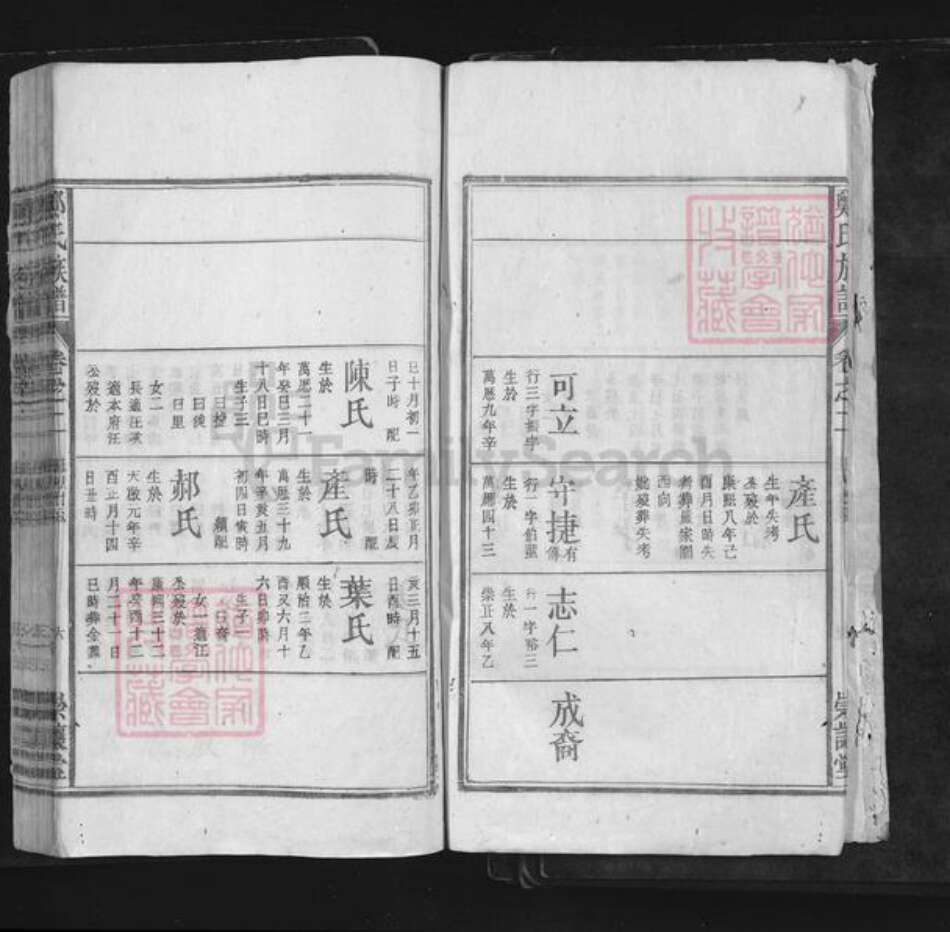 鄭氏族譜
卷之二
崇讓堂
產氏
生年失考
歿於
康熙八年己
酉月日時失
考葬嚴家園
西向
妣歿葬失考
可立
行三字振宇
生於
萬曆九年辛
守捷
有傳
行一字伯藍
生於
萬曆四十三
志仁
行一字裕三
生於
崇正八年乙
成裔
巳十月初一
日子時 配
陳氏
生於
萬曆二十一
年癸巳三月
十八日巳時
生子三
曰捷
曰後
曰里
女二
長適江
適本府汪
公歿於
年乙卯正月
二十八日辰
時 配
產氏
生於
萬曆三十九
年辛亥九月
初四日寅時
續配
郝氏
生於
天啟元年辛
酉正月十四
日丑時
亥三月十五
日酉時 配
葉氏
生於
順治二年乙
酉又六月十
六日卯時
生子一
成裔
女一適江
公歿於
康熙三十二
年癸酉十二
月二十一日
巳時葬金
鄭氏族譜
卷之二
六
崇讓堂
譜學會
收藏
FamilySearch